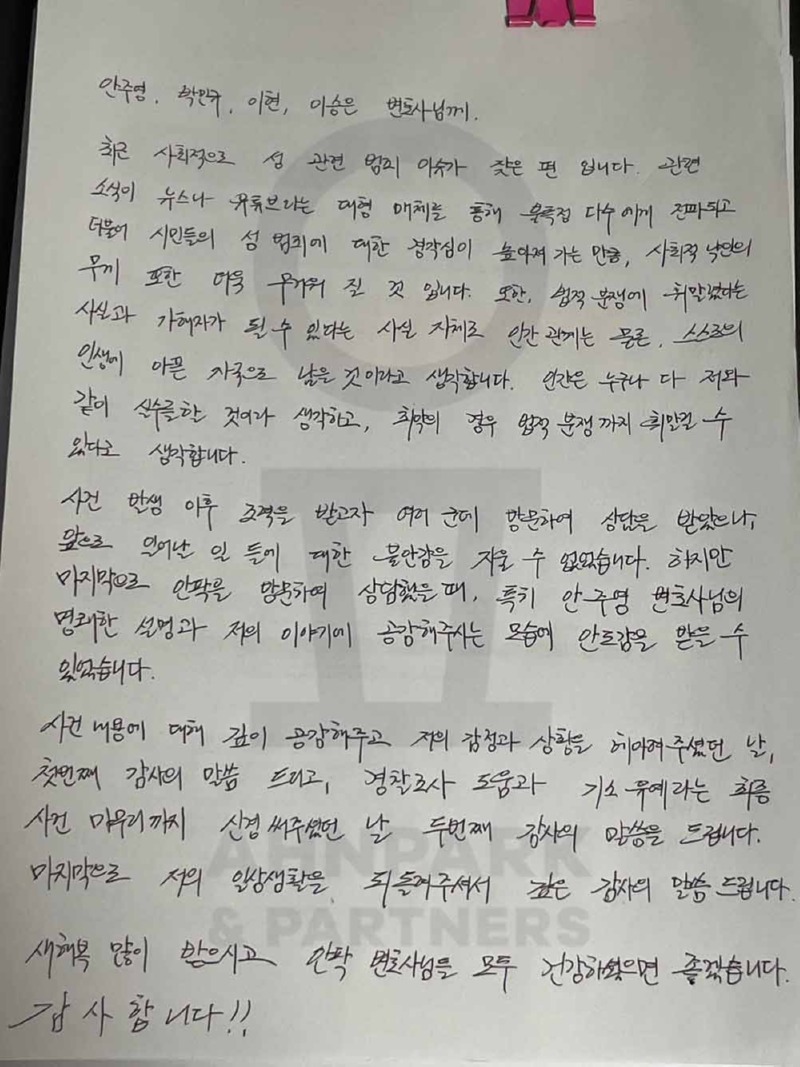 안주영, 박민규, 이현, 이승은 변호사님께.
최근 사회적으로 성 관련 범죄 이슈가 잦은 편 입니다. 관련
소식이 뉴스나 유튜브라는 대형 매체를 통해 불특정 다수에게 전파되고
더불어 시민들의 성 범죄에 대한 경각심이 높아져 가는 만큼, 사회적 낙인의
무게 또한 더욱 무거워 질 것 입니다. 또한, 법적 분쟁에 휘말렸다는
사실과 가해자가 될 수 있다는 사실 자체로 인간 관계는 물론, 스스로의
인생에 아픈 자국으로 남을 것이라고 생각합니다. 인간은 누구나 다 저와
같이 실수를 한 것이라 생각하고, 최악의 경우 법적 분쟁 까지 휘말릴 수
있다고 생각합니다.
사건 발생 이후 조력을 받고자 여러 군데 방문하여 상담을 받았으나,
앞으로 일어난 일 들에 대한 불안감을 지울 수 없었습니다. 하지만
마지막으로 안팍을 방문하여 상담했을 때, 특히 안주영 변호사님의
명쾌한 설명과 저의 이야기에 공감해주시는 모습에 안도감을 받을 수
있었습니다.
사건 내용에 대해 깊이 공감해주고 저의 감정과 상황을 헤아려주셨던 날,
첫번째 감사의 말씀 드리고, 경찰조사 도움과 기소유예라는 최종
사건 마무리까지 신경 써주셨던 날 두번째 감사의 말씀을 드립니다.
마지막으로 저의 일상생활을 되돌려주셔서 깊은 감사의 말씀 드립니다.
새해복 많이 받으시고 안팍 변호사님들 모두 건강하셨으면 좋겠습니다.
감사합니다!!
AHNPARK
& PARTNERS